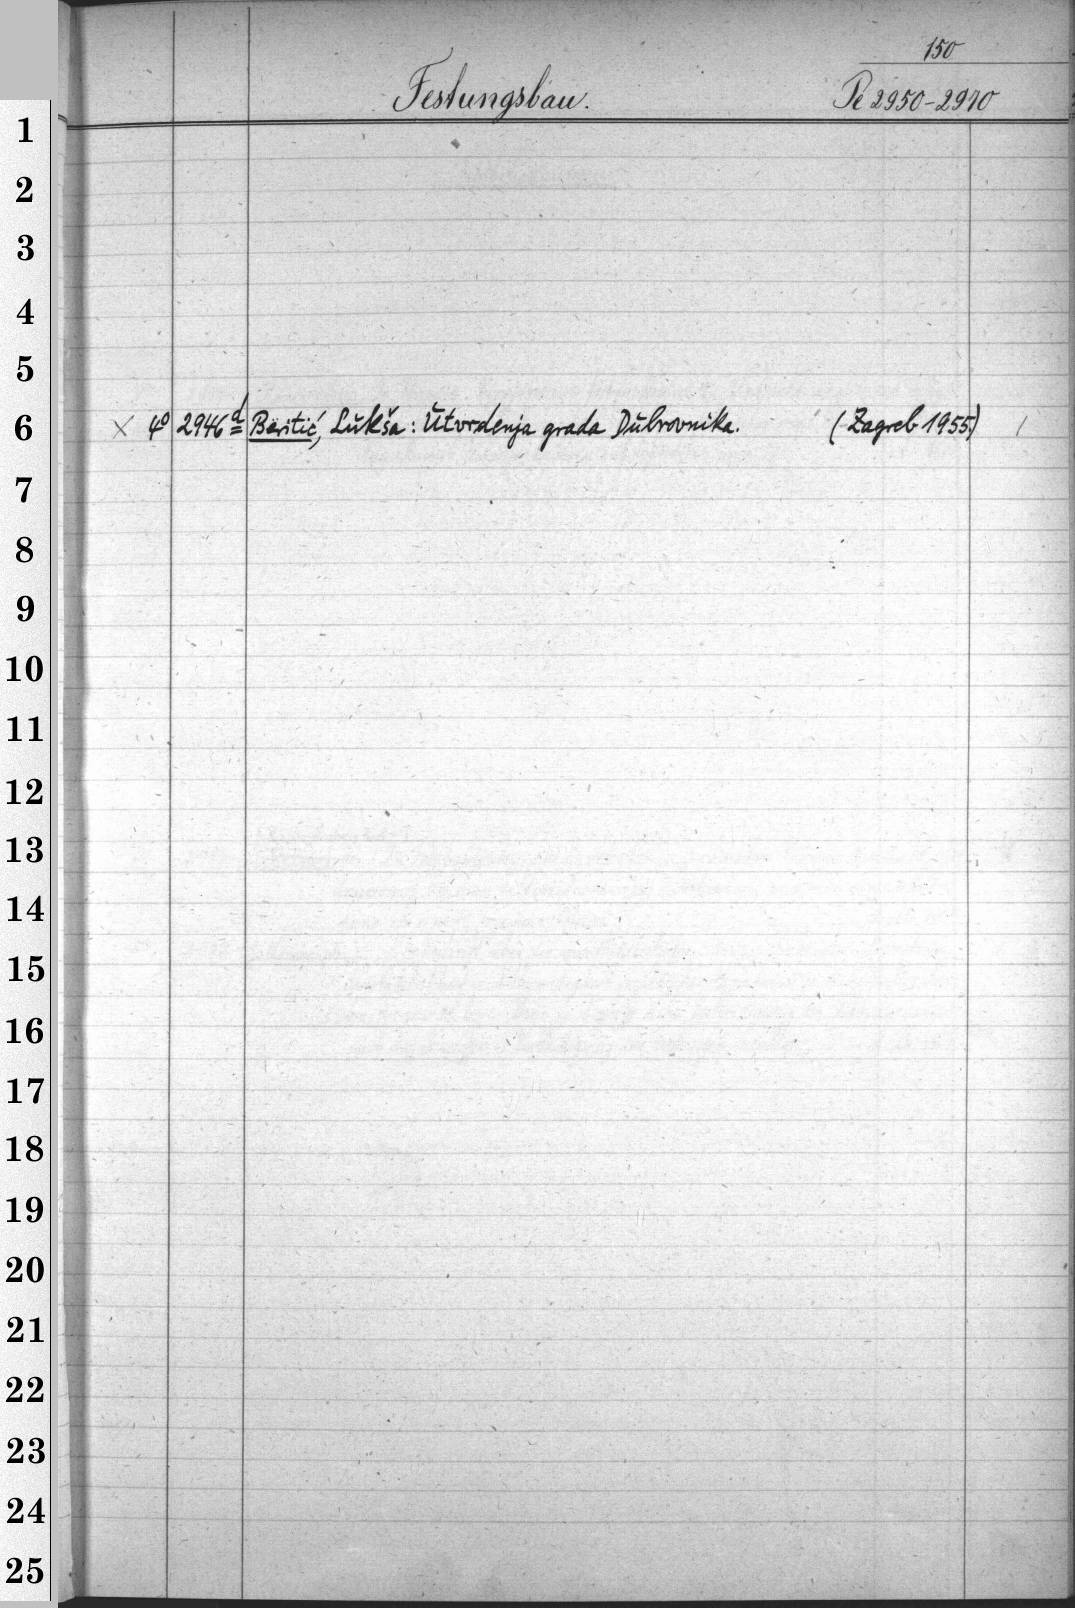 150
Festungsbau. Pe 2950-2970
1
2
3
4
5
6 × 4° 2946 d Beritić, Lukša: Utvrdenja grada Dubrovnika. (Zagreb 1955) /
7
8
9
10
11
12
13
14
15
16
17
18
19
20
21
22
23
24
25